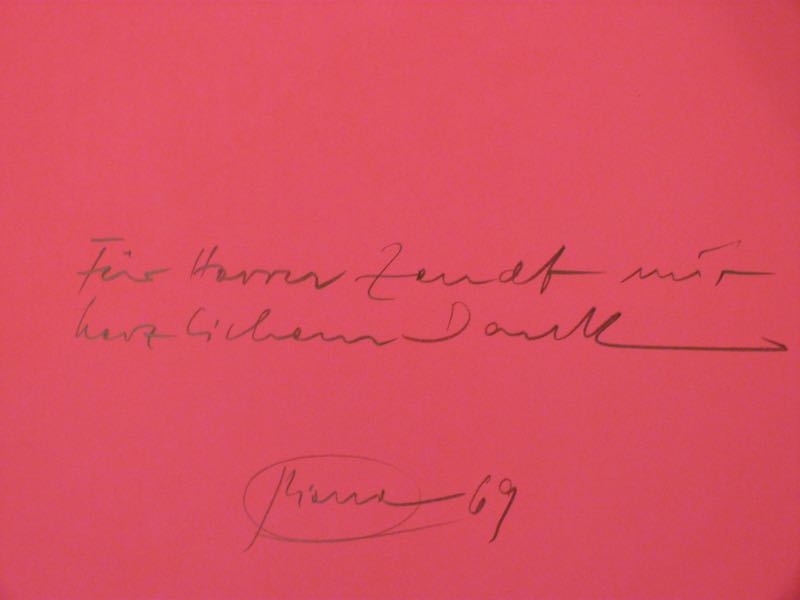 Für Herrn Zandt mit
herzlichem Dank
69